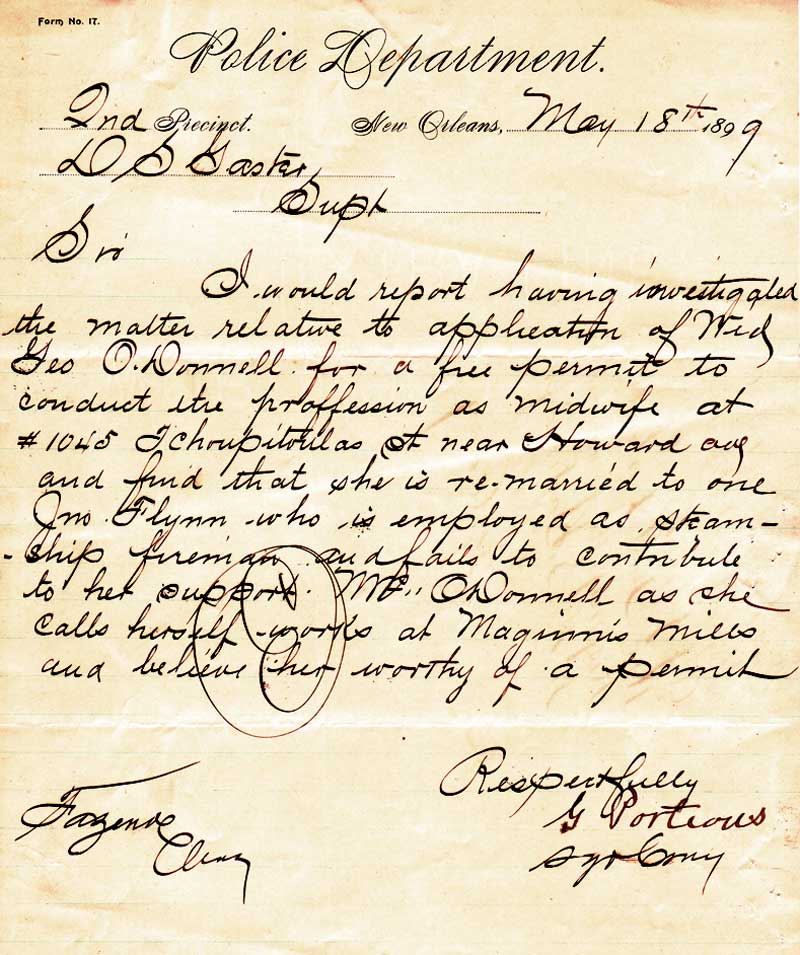 Form No. 17.
Police Department.
2nd Precinct. New Orleans, May 18th 1899
D S Gaster,
Supt
Sir
I would report having investigated
the matter relative to application of Wid
Geo O.Donnell for a free permit to
conduct the proffession as midwife at
#1045 Tchoupitoulas St near Howard ave
and find that she is re-married to one
Jno. Flynn who is employed as steam-
-ship fireman and fails to contribute
to her support. Mrs. O'Donnell as she
calls herself works at Maginnis Mills
and believe her worthy of a permit
Respectfully
G Porteous
Sgt Comg
Fazende